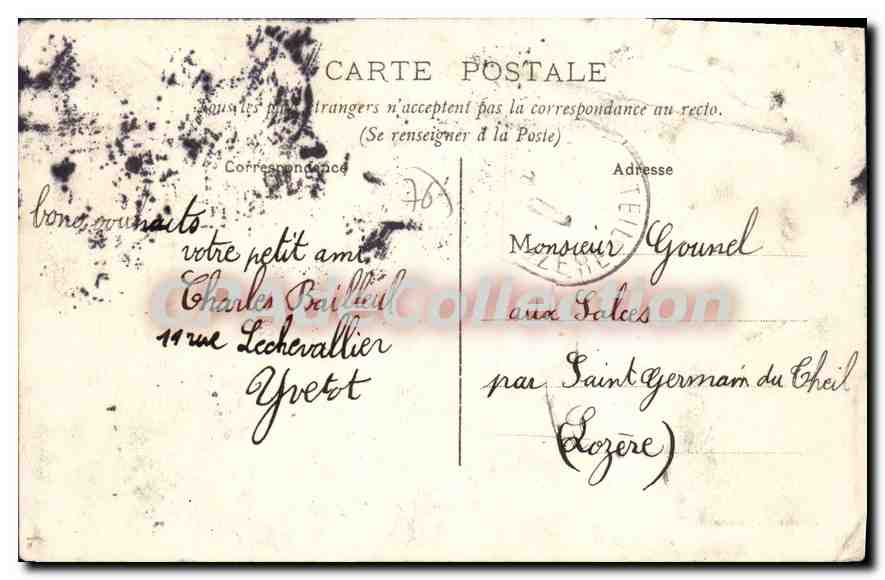 CARTE POSTALE
Tous les pays étrangers n'acceptent pas la correspondance au recto.
(Se renseigner à la Poste)
Correspondance
Adresse
76
bons souhaits
votre petit ami
Charles Bailleul
11 rue Lechevallier
Yvetot
Monsieur Gounel
aux Salces
par Saint Germain du Theil
(Lozère)
TEIL
LOZERE
CPA-Collection